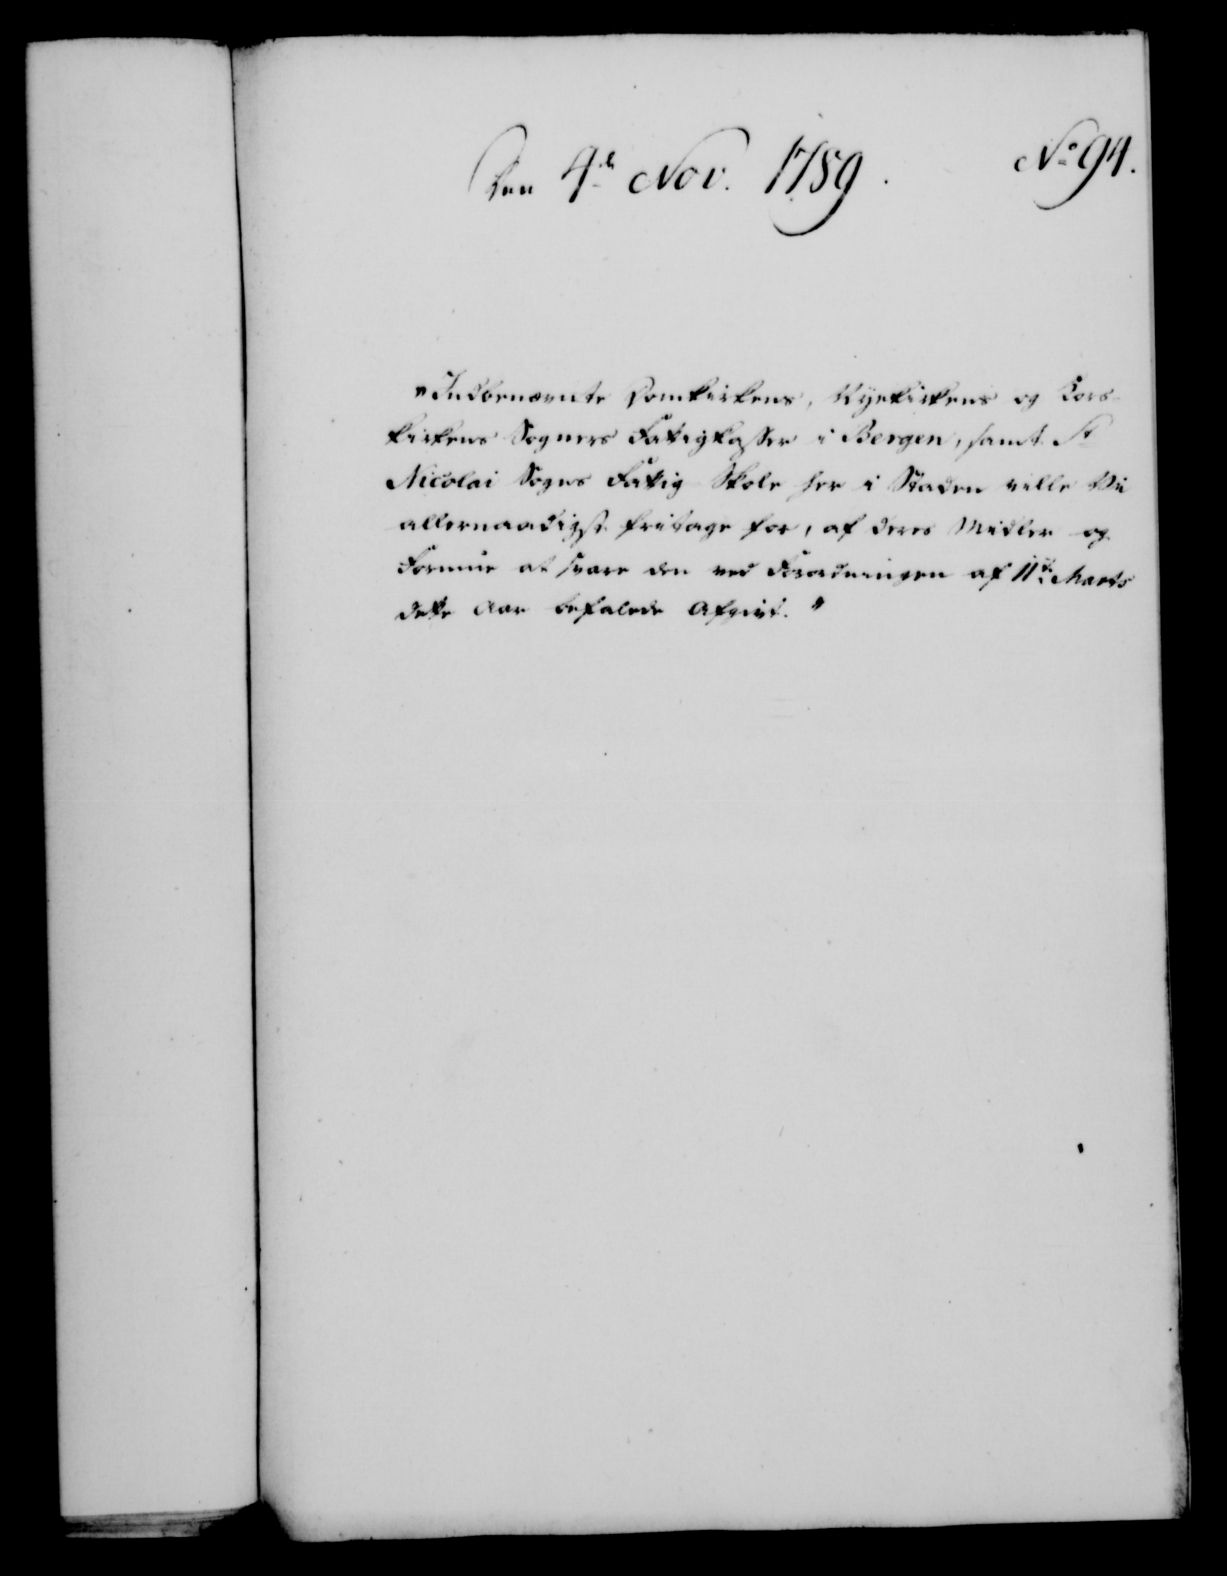 Den 4de Nov. 1789.
No 94.
"Indbenævnte Domkirkens, Nyekirkens og Kors-
kirkens Sogners Fatigkasser i Bergen, samt St
Nicolai Sogns Fattig Skole her i Staden ville Vi
allernaadigst fritage for, af deres Midler og
Formue at svare den ved Forordningen af 11te Marts
dette Aar befalede Afgivt."